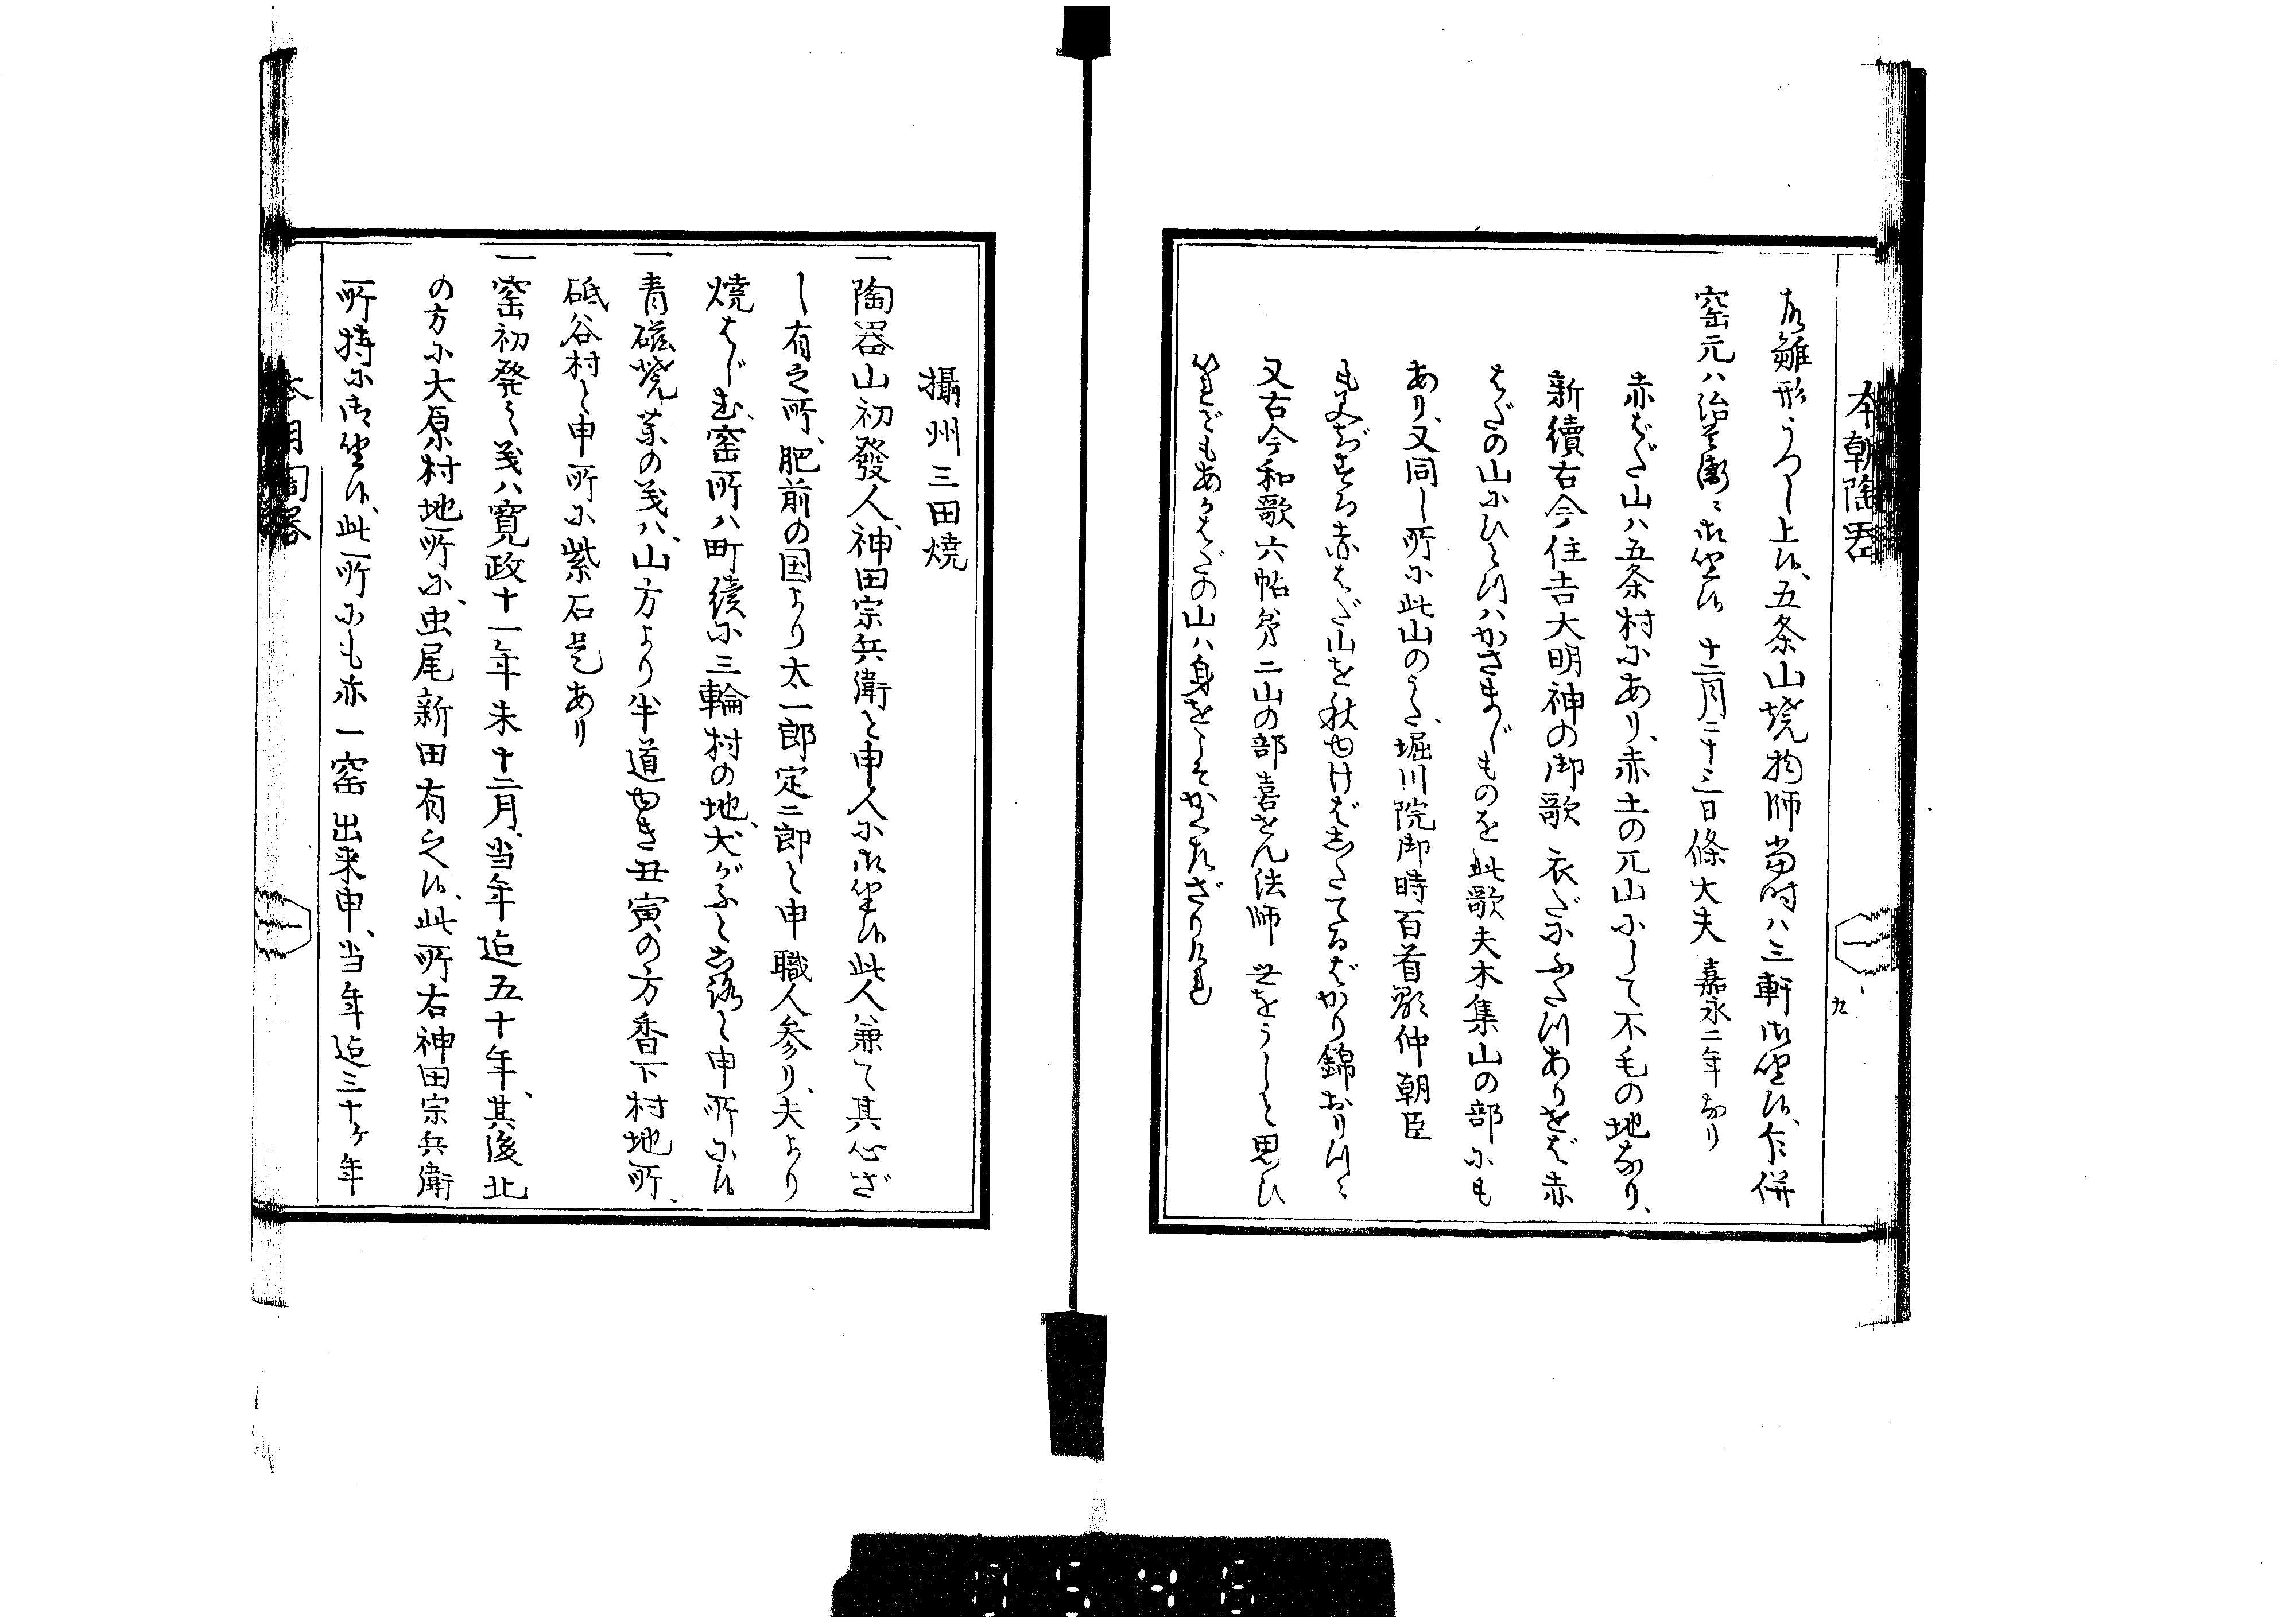 本朝陶器
九
雛形うつし上候、五条山焼物師当時ハ三軒御坐候、乍併
窯元ハ治兵衛ニ御坐候 十二月二十三日條大夫 嘉永二年なり
赤はだ山ハ五条村にあり、赤土の兀山にして不毛の地なり、
新續古今住吉大明神の御歌 衣だにふたつありせば赤
はだの山にひとつハかさましものを 此歌夫木集山の部にも
あり、又同し所に此山のうた、堀川院御時百首顕仲朝臣
もみぢする赤はだ山を秋ゆけばしたてるばかり錦おりつゝ
又古今和歌六帖第二山の部喜せん法師 世をうしと思ひ
山ハ身をこそかくさざりけれ
攝州三田焼
一陶器山初發人、神田宗兵衛と申人に御坐候此人兼て其心ざ
し有之所、肥前の国より太一郎定二郎と申職人参り、夫より
焼はじむ、窯所ハ町續に三輪村の地、と申所に候
一青磁焼薬の義ハ、山方より半道ゆき丑寅の方香下村地所、
砥谷村と申所に紫石是あり
一窯初発之義ハ寛政十一年未十二月、当年迄五十年、其後北
の方に大原村地所に、虫尾新田有之候、此所右神田宗兵衛
所持に御坐候、此所にも亦一窯出来申、当年迄三十ヶ年